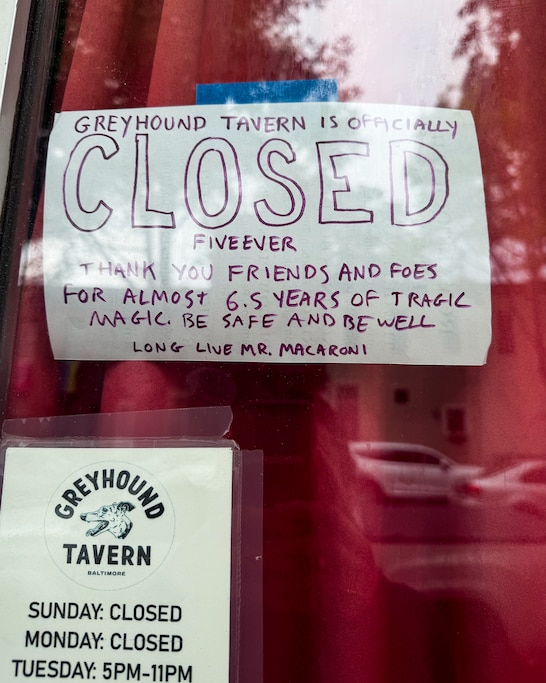 GREYHOUND TAVERN IS OFFICIALLY
CLOSED
FIVEEVER
THANK YOU FRIENDS AND FOES
FOR ALMOST 6.5 YEARS OF TRAGIC
MAGIC. BE SAFE AND BE WELL
LONG LIVE MR. MACARONI
GREYHOUND
TAVERN
BALTIMORE
SUNDAY: CLOSED
MONDAY: CLOSED
TUESDAY: 5PM-11PM